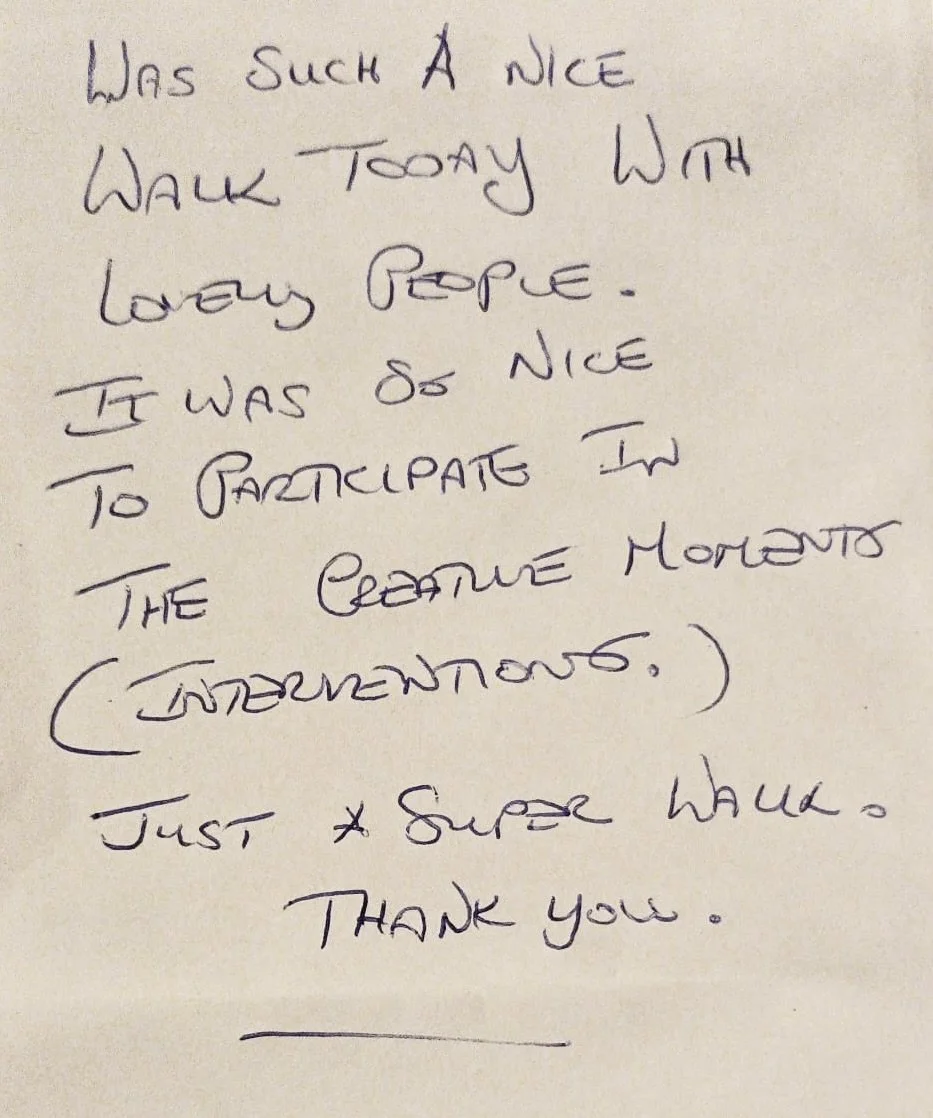 WAS SUCH A NICE
WALK TODAY WITH
LOVELY PEOPLE.
IT WAS SO NICE
TO PARTICIPATE IN
THE CREATIVE MOMENTS
(INTERVENTIONS.)
JUST A SUPER WALK.
THANK YOU.